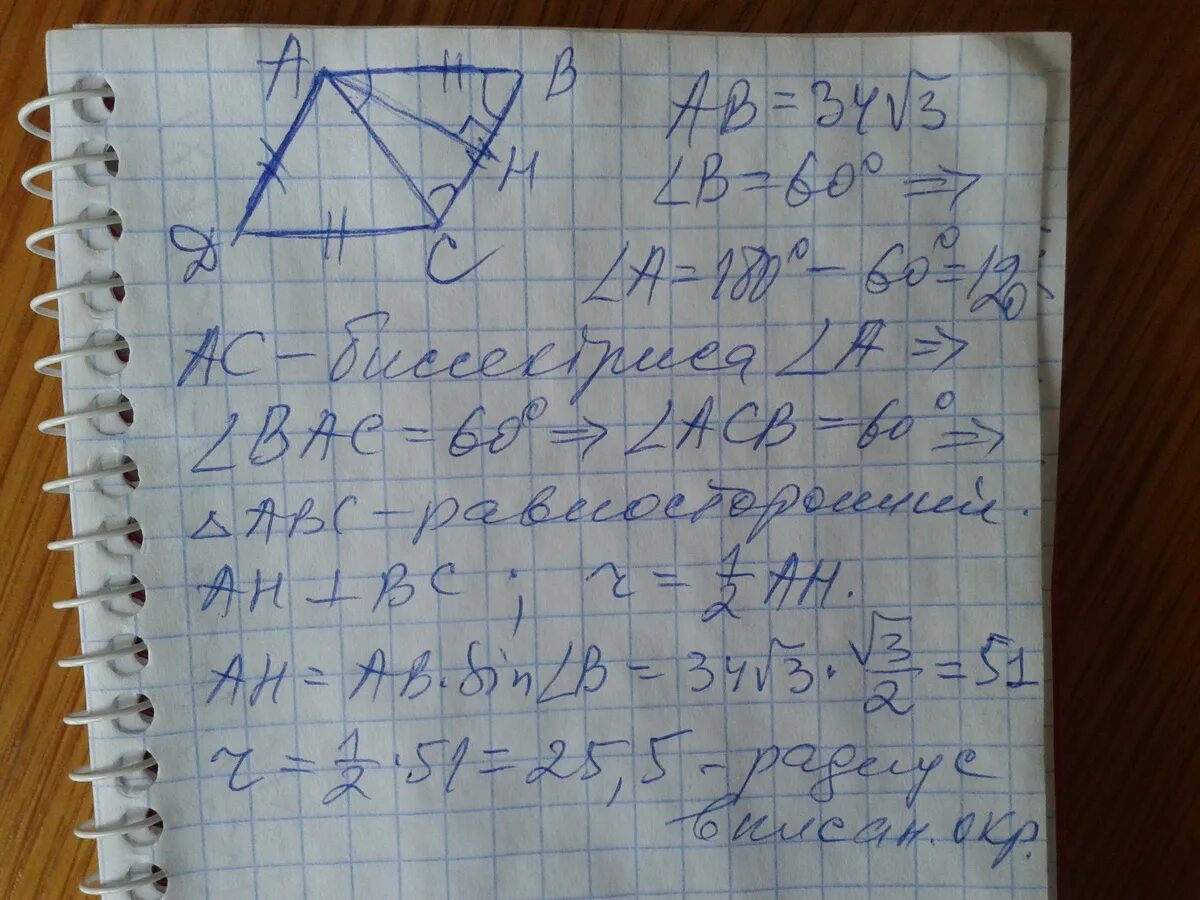 A
B
H
D
C
AB = 34√3
∠B = 60° ⇒
∠A = 180° − 60° = 120
AC – биссектриса ∠A ⇒
∠BAC = 60° ⇒ ∠ACB = 60° ⇒
△ABC – равносторонний.
AH ⊥ BC ; r = 1/2 AH.
AH = AB · sin∠B = 34√3 · √3/2 = 51
r = 1/2 · 51 = 25,5 – радиус
вписан. окр.